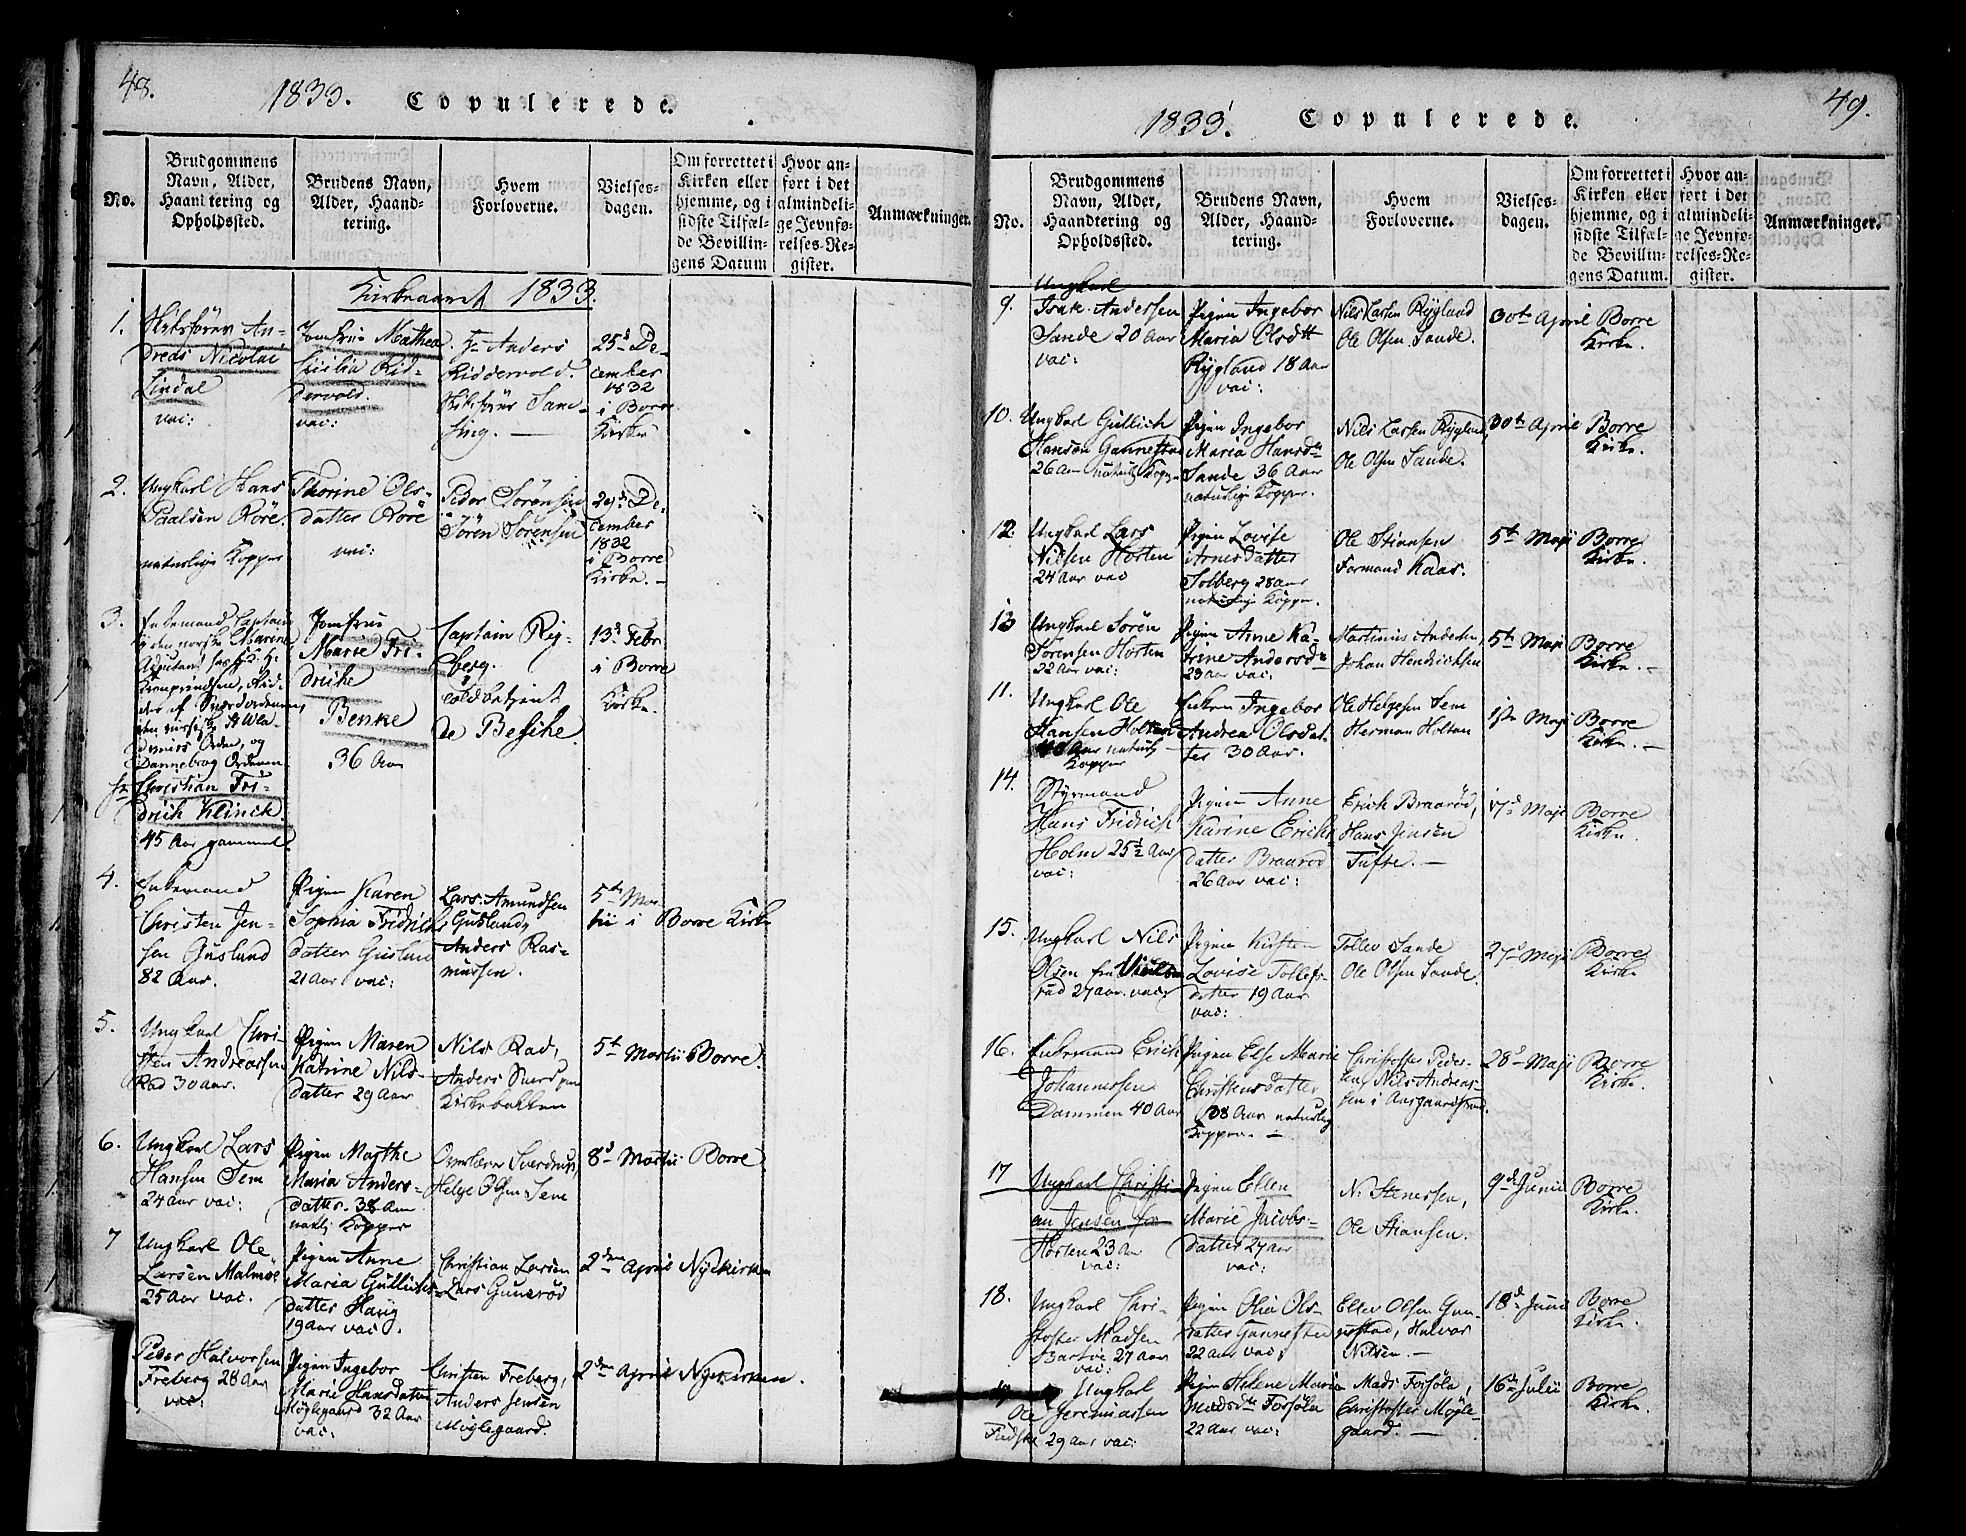 48.
1833. Copulerede.
No.
Brudgommens
Navn, Alder,
Haandtering og
Opholdssted.
Brudens Navn,
Alder, Haand-
tering.
Hvem
Forloverne.
Vielses-
dagen.
Om forrettet i
Kirken eller
hjemme, og i
sidste Tilfæl-
de Bevillin-
gens Datum
Hvor an-
ført i det
almindeli-
ge Jevnfø-
relses-Re-
gister.
Anmærkninger.
Kirkeaaret 1833.
1.
An-
dreas Nicolai
Lindal
vac:
Jomfrue Mathea
Cicilia Rid-
dervold.
vac:
Hr Anders
Riddervold.
25d De-
cember
1832
i Borre
Kirke
2.
Ungkarl Hans
Paalsen Röre.
naturlige Kopper
Thorine Ols-
datter Röre
vac:
Peder Sörensen
Sören Sörensen
29d De-
cember
1832
i Borre
Kirke. -
3.
Enkemand Captain
i den norske Marine
Adjutant
Kronprindsen, Rid-
der af Sværdordenen,
den russiske St Wla-
demirs Orden, og
Dannebrog Ordenen
Hr Christian Fri-
drich Klinck.
45 Aar gammel
Jomfrue
Marie Fri-
driche
Benke
36 Aar
Captain Ryg-
berg.
de Besche.
13d Febr
i Borre
Kirke.
4.
Enkemand
Christen Jen-
sen Guslund
82 Aar.
Pigen Karen
Sophia Fridrichs
datter Guslund
21 Aar vac:
Lars Amundsen
Guslund,
Anders Ras-
mussen.
5te Mar-
tii i Borre Kirke
5.
Ungkarl Chri-
sten Andreassen
Rad 30 Aar.
Pigen Maren
Katrine Nils-
datter 29 Aar
Nils Rad,
Anders
Kirkebakken
5t Martii Borre.
6.
Ungkarl Lars
Hansen Sem
24 Aar vac:
Pigen Marthe
Maria Anders-
datter. 38 Aar
natl: Kopper
Sverdrup,
Helge Olsen Sem
8d Martii Borre
7
Ungkarl Ole
Larsen Malmöe
25 Aar vac.
Pigen Anne
Maria Gullichs-
datter Haug
19 Aar vac.
Christian Larsen
Lars Gunerød
2den April Nykirken
Peder Halvorsen
Freberg 28 Aar
vac:
Pigen Ingebor
Marie Hansdatter
Möglegaard 32 Aar
vac:
Christen Freberg,
Anders Jensen
Möglegaard.
2den April Nykirken.
49.
1833. Copulerede.
No.
Brudgommens
Navn, Alder,
Haandtering og
Opholdssted.
Brudens Navn,
Alder, Haand-
tering.
Hvem
Forloverne.
Vielses-
dagen.
Om forrettet i
Kirken eller
hjemme, og i
sidste Tilfæl-
de Bevillin-
gens Datum.
Hvor an-
ført i det
almindeli-
ge Jevnfø-
relses-Re-
gister.
Anmærkninger.
9.
Ungkarl
Isak Andersen
Sande 20 Aar
vac:
Pigen Ingebor
Maria Olsdtt
Rygland 18 Aar
vac:
Nils Larsen Rygland
Ole Olsen Sande.
30te April Borre
Kirke.
10.
Ungkarl Gullich
Hansen Gannestad
26 Aar naturl: Kopp.
Pigen Ingebor
Maria Hansdtr
Sande 36 Aar
naturlige Kopper.
Nils Larsen Rygland,
Ole Olsen Sande.
30te April Borre
Kirke.
12.
Ungkarl Lars
Nilsen Horten
24 Aar vac
Pigen Lovise
Arnesdatter
Solberg 28 Aar
naturlige Kopper.
Ole Stiansen
Formand Kaas.
5te Maji Borre
Kirke.
13
Ungkarl Sören
Sörensen Horten
22 Aar vac:
Pigen Anne Ka-
trine Andersdtr
23 Aar vac:
Martinius Andersen,
Johan Hendrichsen
5te Maji Borre
Kirke. -
11.
Ungkarl Ole
Hansen Holtan
40 Aar naturl:
Kopper
Enken Ingebor
Andrea Olsdat-
ter 30 Aar.
Ole Helgesen Sem
Herman Holtan
1ste Maji Borre
Kirke. -
14.
Styrmand
Hans Fridrich
Holm 25½ Aar
vac:
Pigen Anne
Karine Erichs
datter Braaröd
26 Aar vac:
Erich Braaröd,
Hans Jensen
Tufte. -
17d Maji Borre
Kirke.
15.
Ungkarl Nils
Olsen fra
rud 27 Aar. vac:
Pigen Kirsten
Lovise Tollefs-
datter 19 Aar
vac:
Tollev Sande
Ole Olsen Sande.
27d Maji Borre
Kirke
16.
Enkemand Erich
Johannessen
Dammen 40 Aar
Pigen Else Marie
Christensdatter
38 Aar naturlig
Kopper. -
Christoffer Peder-
sen, Nils Andreas-
sen i Aasgaardstrand.
28d Maji Borre
Kirke.
17
Ungkarl Christi-
an Jensen fra
Horten 23 Aar
vac:
Pigen Ellen
Marie Jacobs-
datter 27 Aar
vac:
N: Stenersen,
Ole Stiansen.
9de Junii Borre
Kirke.
18.
Ungkarl Chri-
stoffer Madsen
27 Aar
vac:
Pigen Olia Ols-
datter Gannestad
22 Aar vac:
Ellev Olsen Gan-
nestad, Halvor
Nilsen. -
18d Junii Borre
Kirke.
Ungkarl
Ole Jeremiassen
29 Aar vac:
Pigen Helene Maria
Madsdtr Forsöla
22 Aar vac:
Mads Forsöla,
Christoffer Mögle-
gaard. -
16de Julii Borre
Kirke.